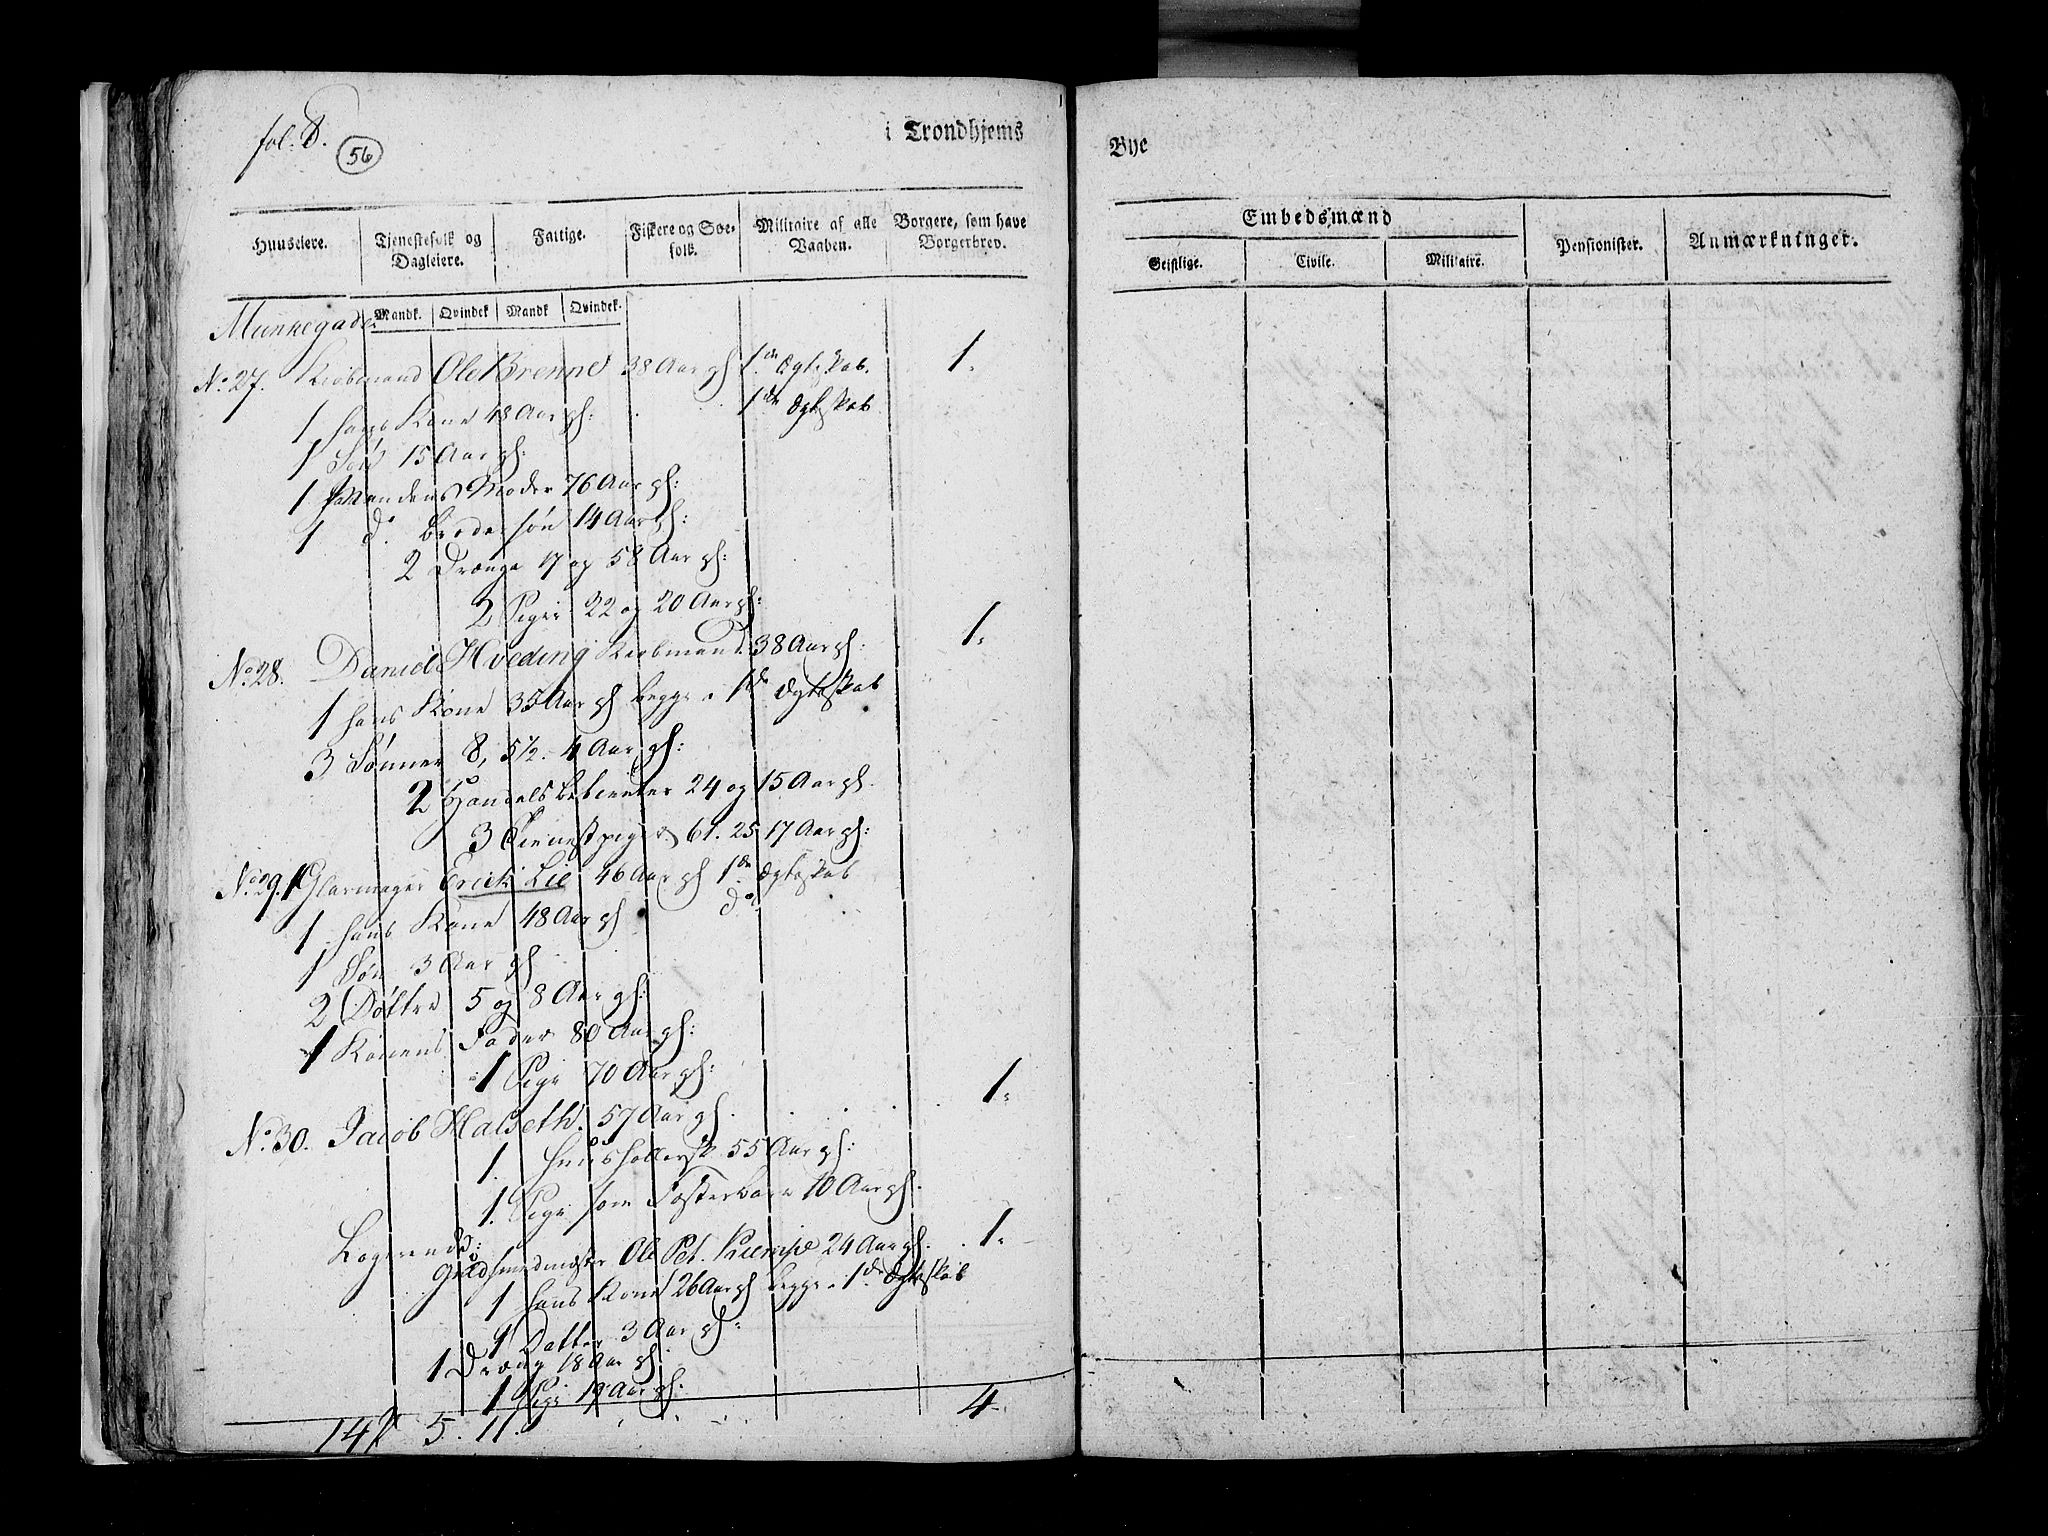 fol. 8.
56
i Trondhjems
Huuseiere. Tjenestefolk og Dagleiere. Fattige. Fiskere og Søefolk. Militaire af alle Vaaben. Borgere, som have Borgerbrev.
Mandk. Qvindek Mandk Qvindek.
Munkegade
No 27. Kiøbmand Ole Brenne 38 Aar gl 1de Ægteskab. 1.
1 hans Kone 48 Aar gl: 1de Ægteskab
1 Søn 15 Aar gl:
1 Mandens Moder 76 Aar gl:
1 do. Broder søn 14 Aar gl:
2 Drænge 17 og 58 Aar gl:
2 Piger 22 og 20 Aar gl:
No 28. Daniel Hveding Kiøbmand 38 Aar gl: 1.
1 hans Kone 35 Aar gl begge i 1de Ægteskab
3 Sønner 8, 5½. 4 Aar gl:
2 Handels betienter 24 og 15 Aar gl.
3 Tienestpiger 61. 25 17 Aar gl:
No 29. 1 Glarmager Erick Lie 46 Aar gl 1de Ægteskab
1 hans Kone 48 Aar gl do
1 Søn 3 Aar gl
2 Døttre 5 og 8 Aar gl:
1 Konens Fader 80 Aar gl:
1 Pige 70 Aar gl:
No. 30. Jacob Halseth. 57 Aar gl. 1.
1. Huusholdersk 55 Aar gl:
1. Pige som Fosterbarn 10 Aar gl.
Logerende:
Guldsmedmester Ole Pet. Kiempe 24 Aar gl. 1.
1 hans Kone 26 Aar gl begge i 1de Ægteskab
1 Datter 3 Aar gl:
1 Dræng 18 Aar gl.
1 Pige 19 Aar gl:
14 5. 11. 4
Bye
Embedsmænd
Geistlige. Civile. Militaire. Pensionister. Anmærkninger.